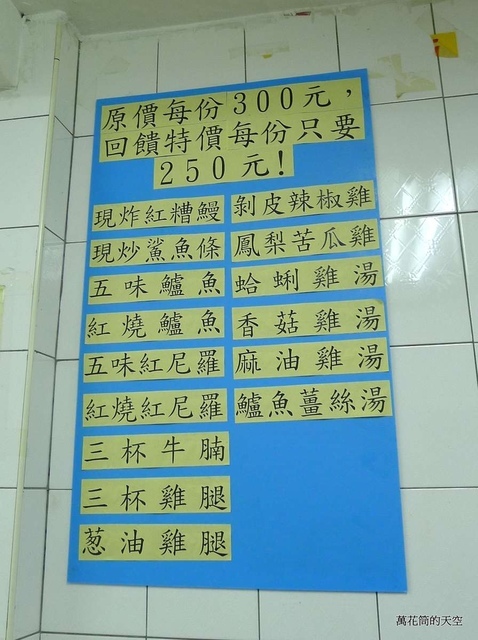 原價每份300元，
回饋特價每份只要
250元!
現炸紅糟鰻
現炒鯊魚條
五味鱸魚
紅燒鱸魚
五味紅尼羅
紅燒紅尼羅
三杯牛腩
三杯雞腿
葱油雞腿
剝皮辣椒雞
鳳梨苦瓜雞
蛤蜊雞湯
香菇雞湯
麻油雞湯
鱸魚薑絲湯
萬花筒的天空